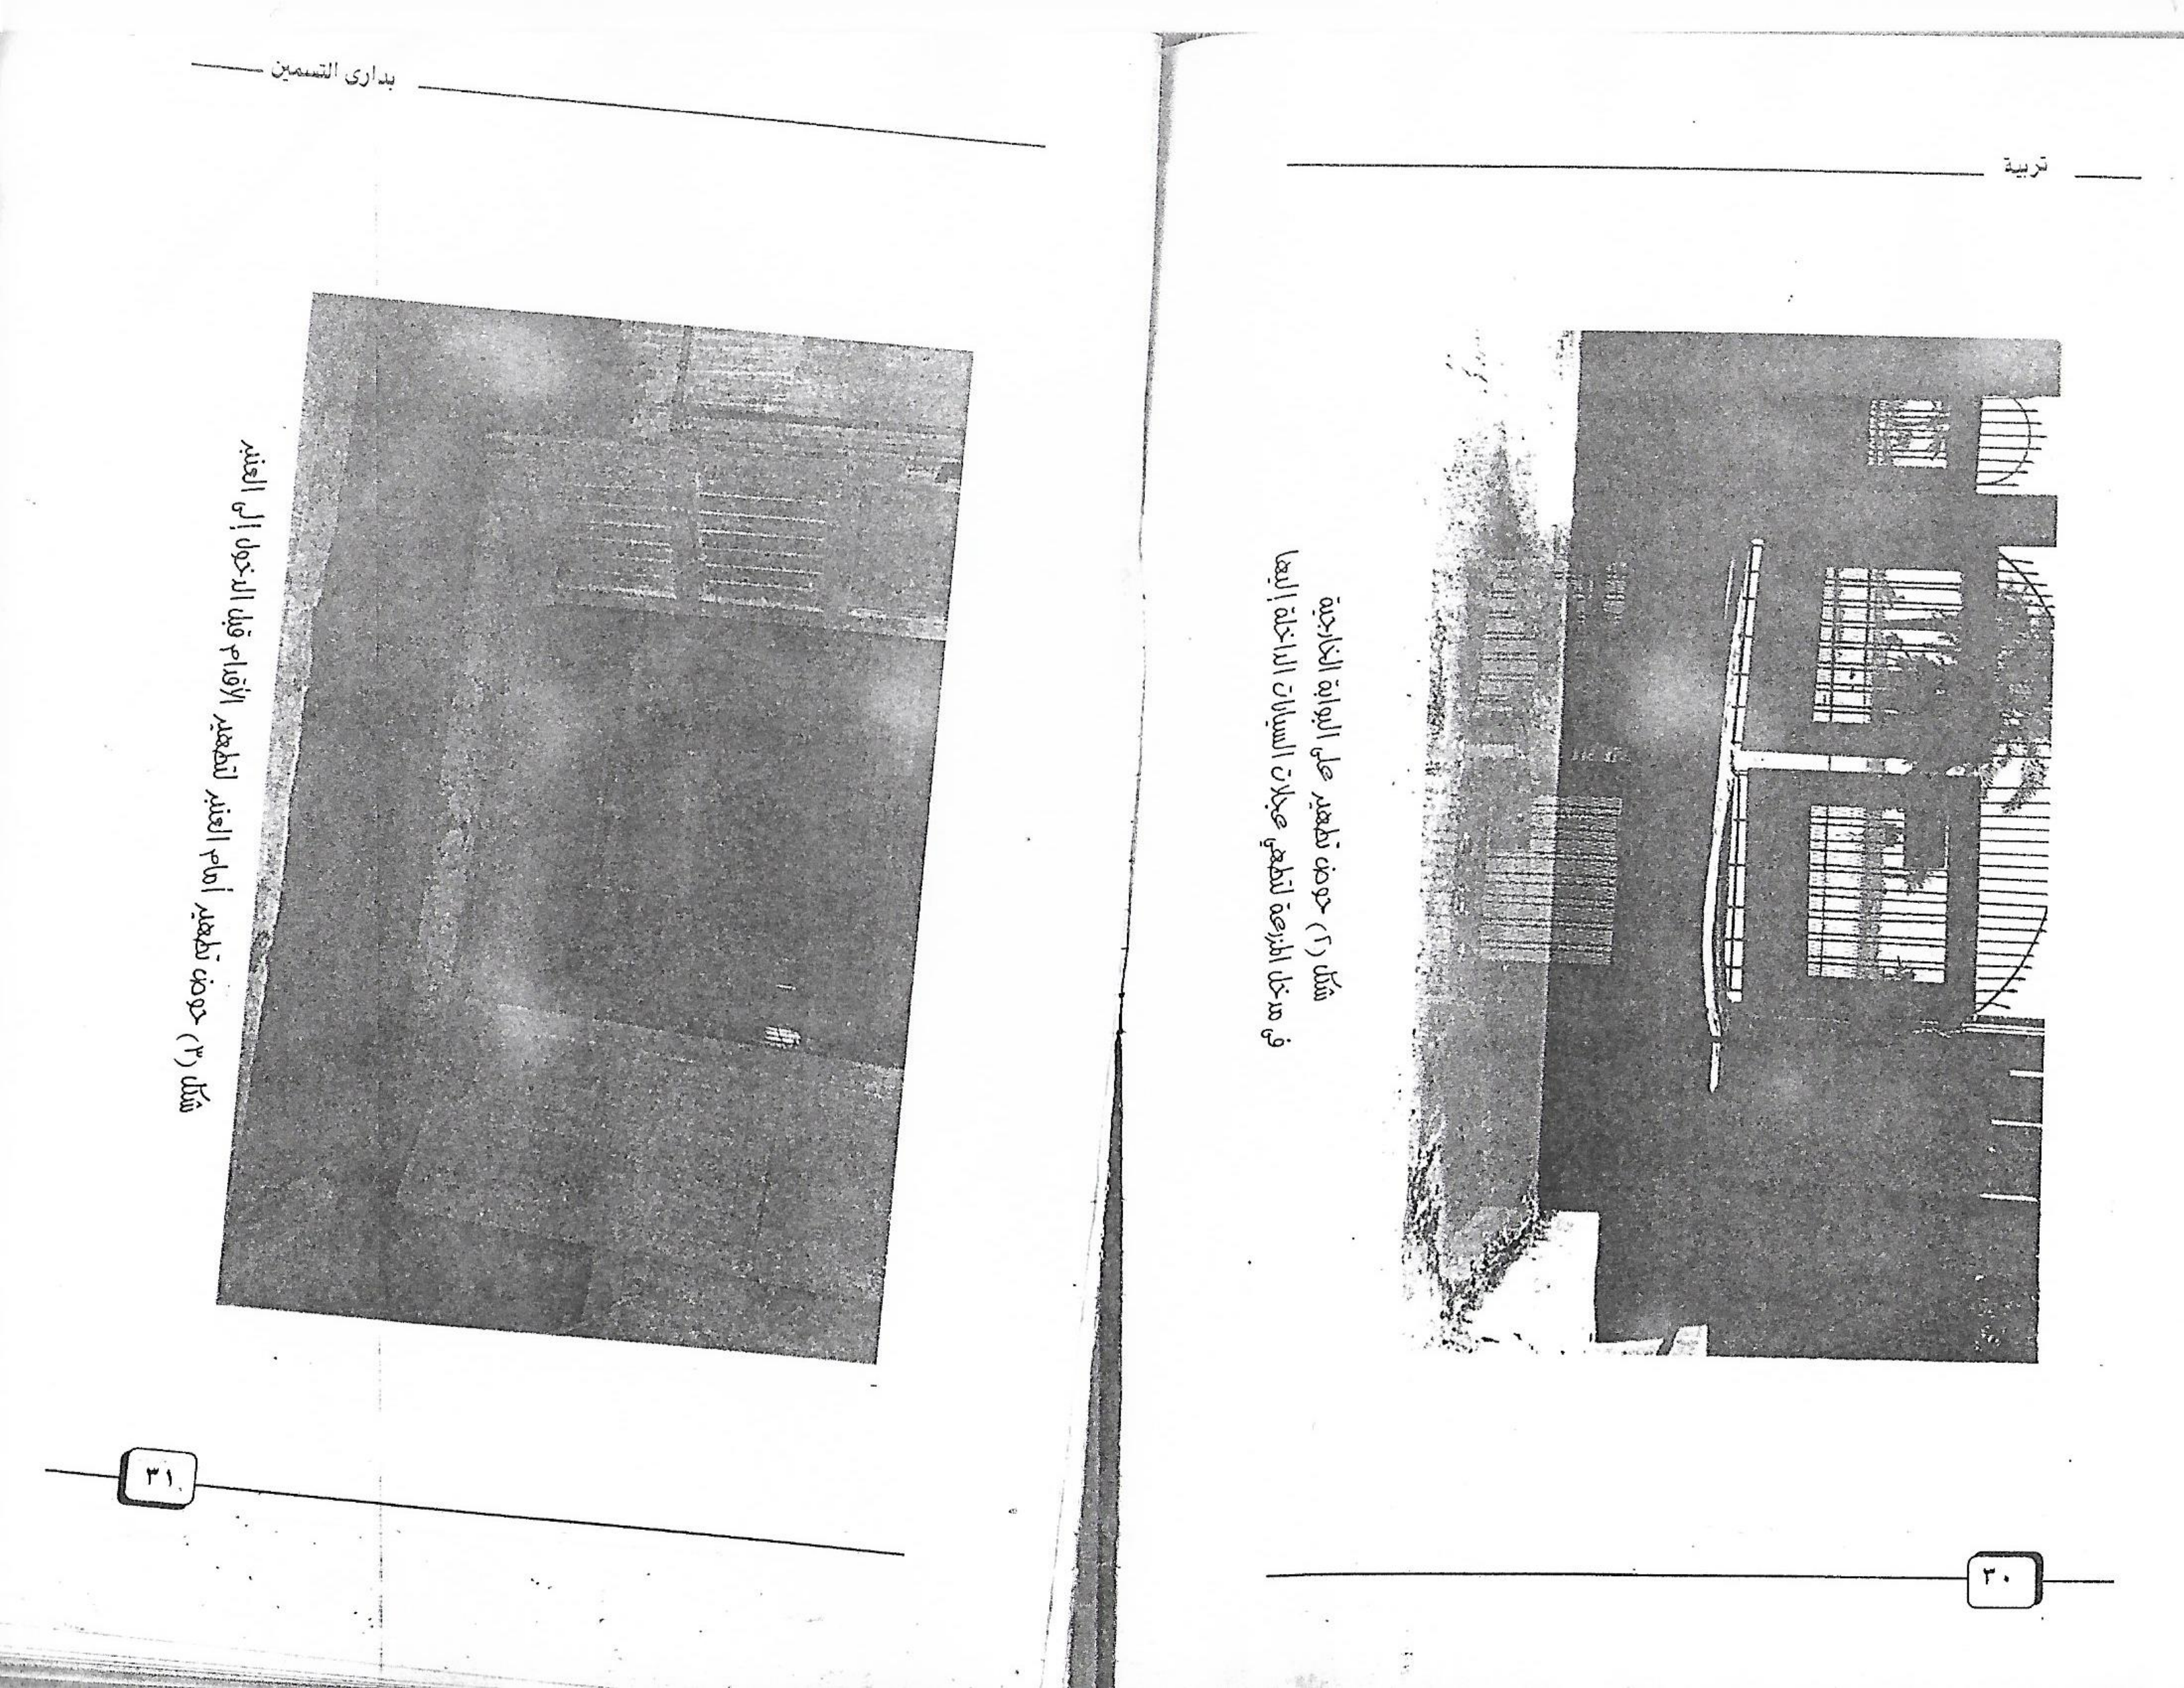 تربية
شكل (٢) حوض تطهير على البوابة الخارجية
فى مدخل المزرعة لتطهي عجلات السيارات الداخلة إليها
٣٠
بدارى التسمين
شكل (٣) حوض تطهير أمام العنبر لتطهير الأقدام قبل الدخول إلى العنبر
٣١